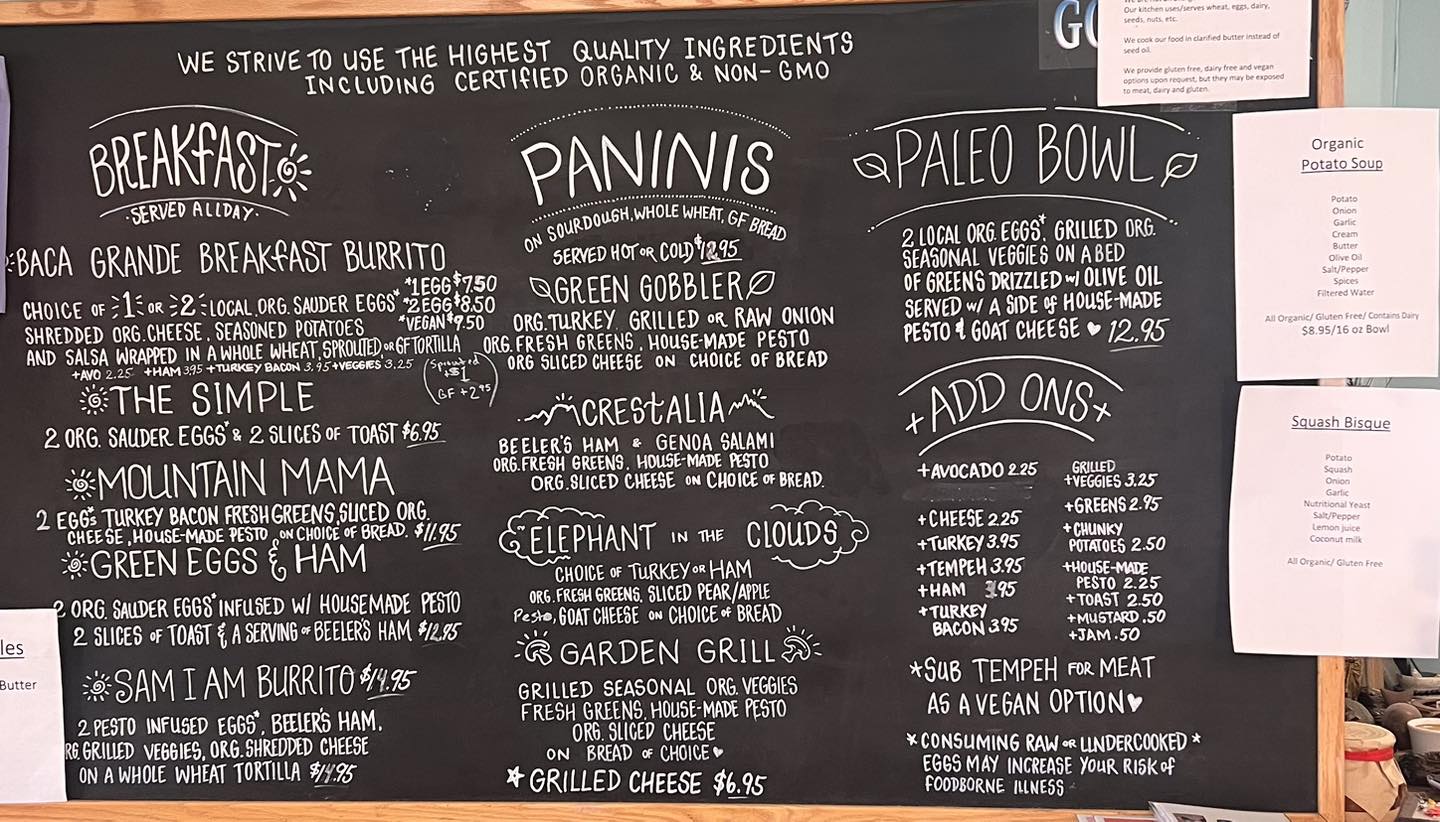 WE STRIVE TO USE THE HIGHEST QUALITY INGREDIENTS
INCLUDING CERTIFIED ORGANIC & NON-GMO
BREAKFAST
·SERVED ALL DAY·
BACA GRANDE BREAKFAST BURRITO
CHOICE OF 1 OR 2 LOCAL ORG. SAUDER EGGS*
*1 EGG $7.50
*2 EGG $8.50
*VEGAN $9.50
SHREDDED ORG. CHEESE, SEASONED POTATOES
AND SALSA WRAPPED IN A WHOLE WHEAT, SPROUTED OR GF TORTILLA
+AVO 2.25 +HAM 3.95 +TURKEY BACON 3.95 +VEGGIES 3.25
Sprouted
+$1
GF +2.95
THE SIMPLE
2 ORG. SAUDER EGGS* & 2 SLICES OF TOAST $6.95
MOUNTAIN MAMA
2 EGGS* TURKEY BACON FRESH GREENS, SLICED ORG.
CHEESE, HOUSE-MADE PESTO, ON CHOICE OF BREAD. $11.95
GREEN EGGS & HAM
2 ORG. SAUDER EGGS* INFUSED W/ HOUSEMADE PESTO
2 SLICES OF TOAST & A SERVING OF BEELER'S HAM $12.95
SAM I AM BURRITO $14.95
2 PESTO INFUSED EGGS*, BEELER'S HAM,
RG. GRILLED VEGGIES, ORG. SHREDDED CHEESE
ON A WHOLE WHEAT TORTILLA $14.95
les
Butter
PANINIS
ON SOURDOUGH, WHOLE WHEAT, GF BREAD
SERVED HOT OR COLD $12.95
GREEN GOBBLER
ORG. TURKEY, GRILLED OR RAW ONION
ORG. FRESH GREENS, HOUSE-MADE PESTO
ORG SLICED CHEESE ON CHOICE OF BREAD
CRESTALIA
BEELER'S HAM & GENOA SALAMI
ORG. FRESH GREENS, HOUSE-MADE PESTO
ORG. SLICED CHEESE ON CHOICE OF BREAD.
ELEPHANT IN THE CLOUDS
CHOICE OF TURKEY OR HAM
ORG. FRESH GREENS, SLICED PEAR/APPLE
Pesto, GOAT CHEESE ON CHOICE OF BREAD
GARDEN GRILL
GRILLED SEASONAL ORG. VEGGIES
FRESH GREENS, HOUSE-MADE PESTO
ORG. SLICED CHEESE
ON BREAD OF CHOICE ♥
☆ GRILLED CHEESE $6.95
PALEO BOWL
2 LOCAL ORG. EGGS*, GRILLED ORG.
SEASONAL VEGGIES ON A BED
OF GREENS DRIZZLED W/ OLIVE OIL
SERVED W/ A SIDE OF HOUSE-MADE
PESTO & GOAT CHEESE ♥ 12.95
+ADD ONS+
+AVOCADO 2.25
+CHEESE 2.25
+TURKEY 3.95
+TEMPEH 3.95
+HAM 3.95
+TURKEY
BACON 3.95
GRILLED
+VEGGIES 3.25
+GREENS 2.95
+CHUNKY
POTATOES 2.50
+HOUSE-MADE
PESTO 2.25
+TOAST 2.50
+MUSTARD .50
+JAM .50
*SUB TEMPEH FOR MEAT
AS A VEGAN OPTION ♥
*CONSUMING RAW OR UNDERCOOKED*
EGGS MAY INCREASE YOUR RISK OF
FOODBORNE ILLNESS
GO
Our kitchen uses/serves wheat, eggs, dairy,
seeds, nuts, etc.
We cook our food in clarified butter instead of
seed oil.
We provide gluten free, dairy free and vegan
options upon request, but they may be exposed
to meat, dairy and gluten.
Organic
Potato Soup
Potato
Onion
Garlic
Cream
Butter
Olive Oil
Salt/Pepper
Spices
Filtered Water
All Organic/ Gluten Free/ Contains Dairy
$8.95/16 oz Bowl
Squash Bisque
Potato
Squash
Onion
Garlic
Nutritional Yeast
Salt/Pepper
Lemon juice
Coconut milk
All Organic/ Gluten Free